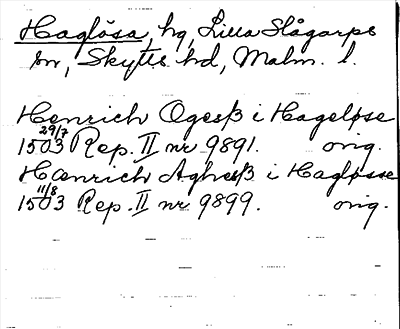 Haglösa, hg, Lilla Slågarps
sn, Skytts hd, Malm. l.
Henrich Ogesß i Hageløse
29/7 1503 Rep. II nr 9891. orig.
Hænrich Aghesß i Hagløsse
11/8 1503 Rep. II nr 9899. orig.